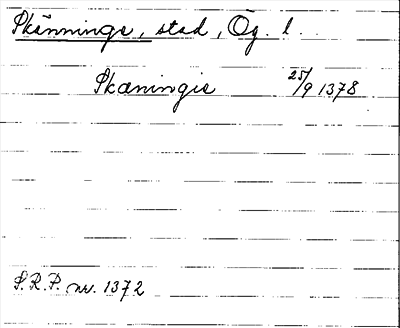 Skänninge, stad, Ög. l.
Skæningis 25/9 1378
S.R.P. nr. 1372